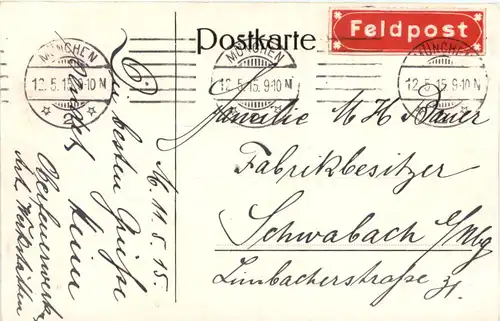 Postkarte
Feldpost
MÜNCHEN
12.5.15. 9-10 N
MÜNCHEN
12.5.15. 9-10 N
MÜNCHEN
12.5.15. 9-10 N
Familie M H Bauer
Fabrikbesitzer
Schwabach b/Nbg
Limbacherstraße
M. 11.5.15.
Die besten Grüße
sendet
Oberfeuerwerker
Art. Werkstätten